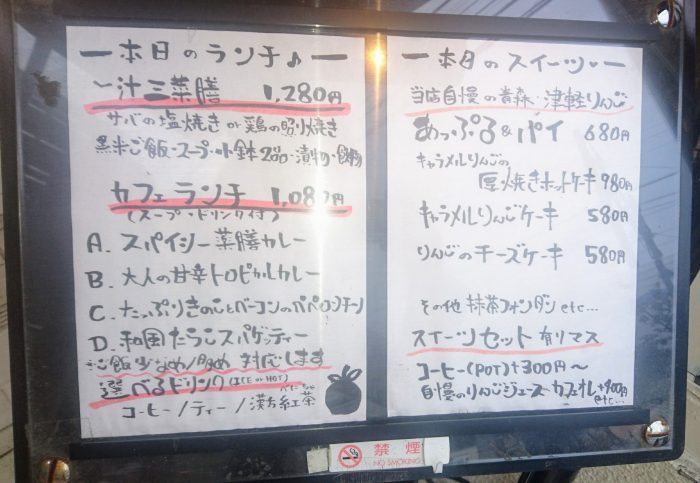 ー本日のランチ♪ー
一汁三菜膳 1,280円
サバの塩焼き or 鶏の照り焼き
黒米ご飯・スープ・小鉢2品・漬物・飲物
カフェランチ 1,080円
(スープ・ドリンク付)
A. スパイシー薬膳カレー
B. 大人の甘辛トロピカルカレー
C. たっぷりきのことベーコンのペペロンチーノ
D. 和風たらこスパゲッティー
ご飯少なめ/多め 対応します
選べるドリンク (ICE or HOT)
コーヒー/ティー/漢方紅茶
ー本日のスイーツー
当店自慢の青森・津軽りんご
あっぷる&パイ 680円
キャラメルりんごの
厚焼きホットケーキ 980円
キャラメルりんごケーキ 580円
りんごのチーズケーキ 580円
その他 抹茶フォンダン etc...
スイーツセット 有リマス
コーヒー(POT)+300円〜
自慢のりんごジュース・カフェオレ+400円
etc...
禁煙
NO SMOKING